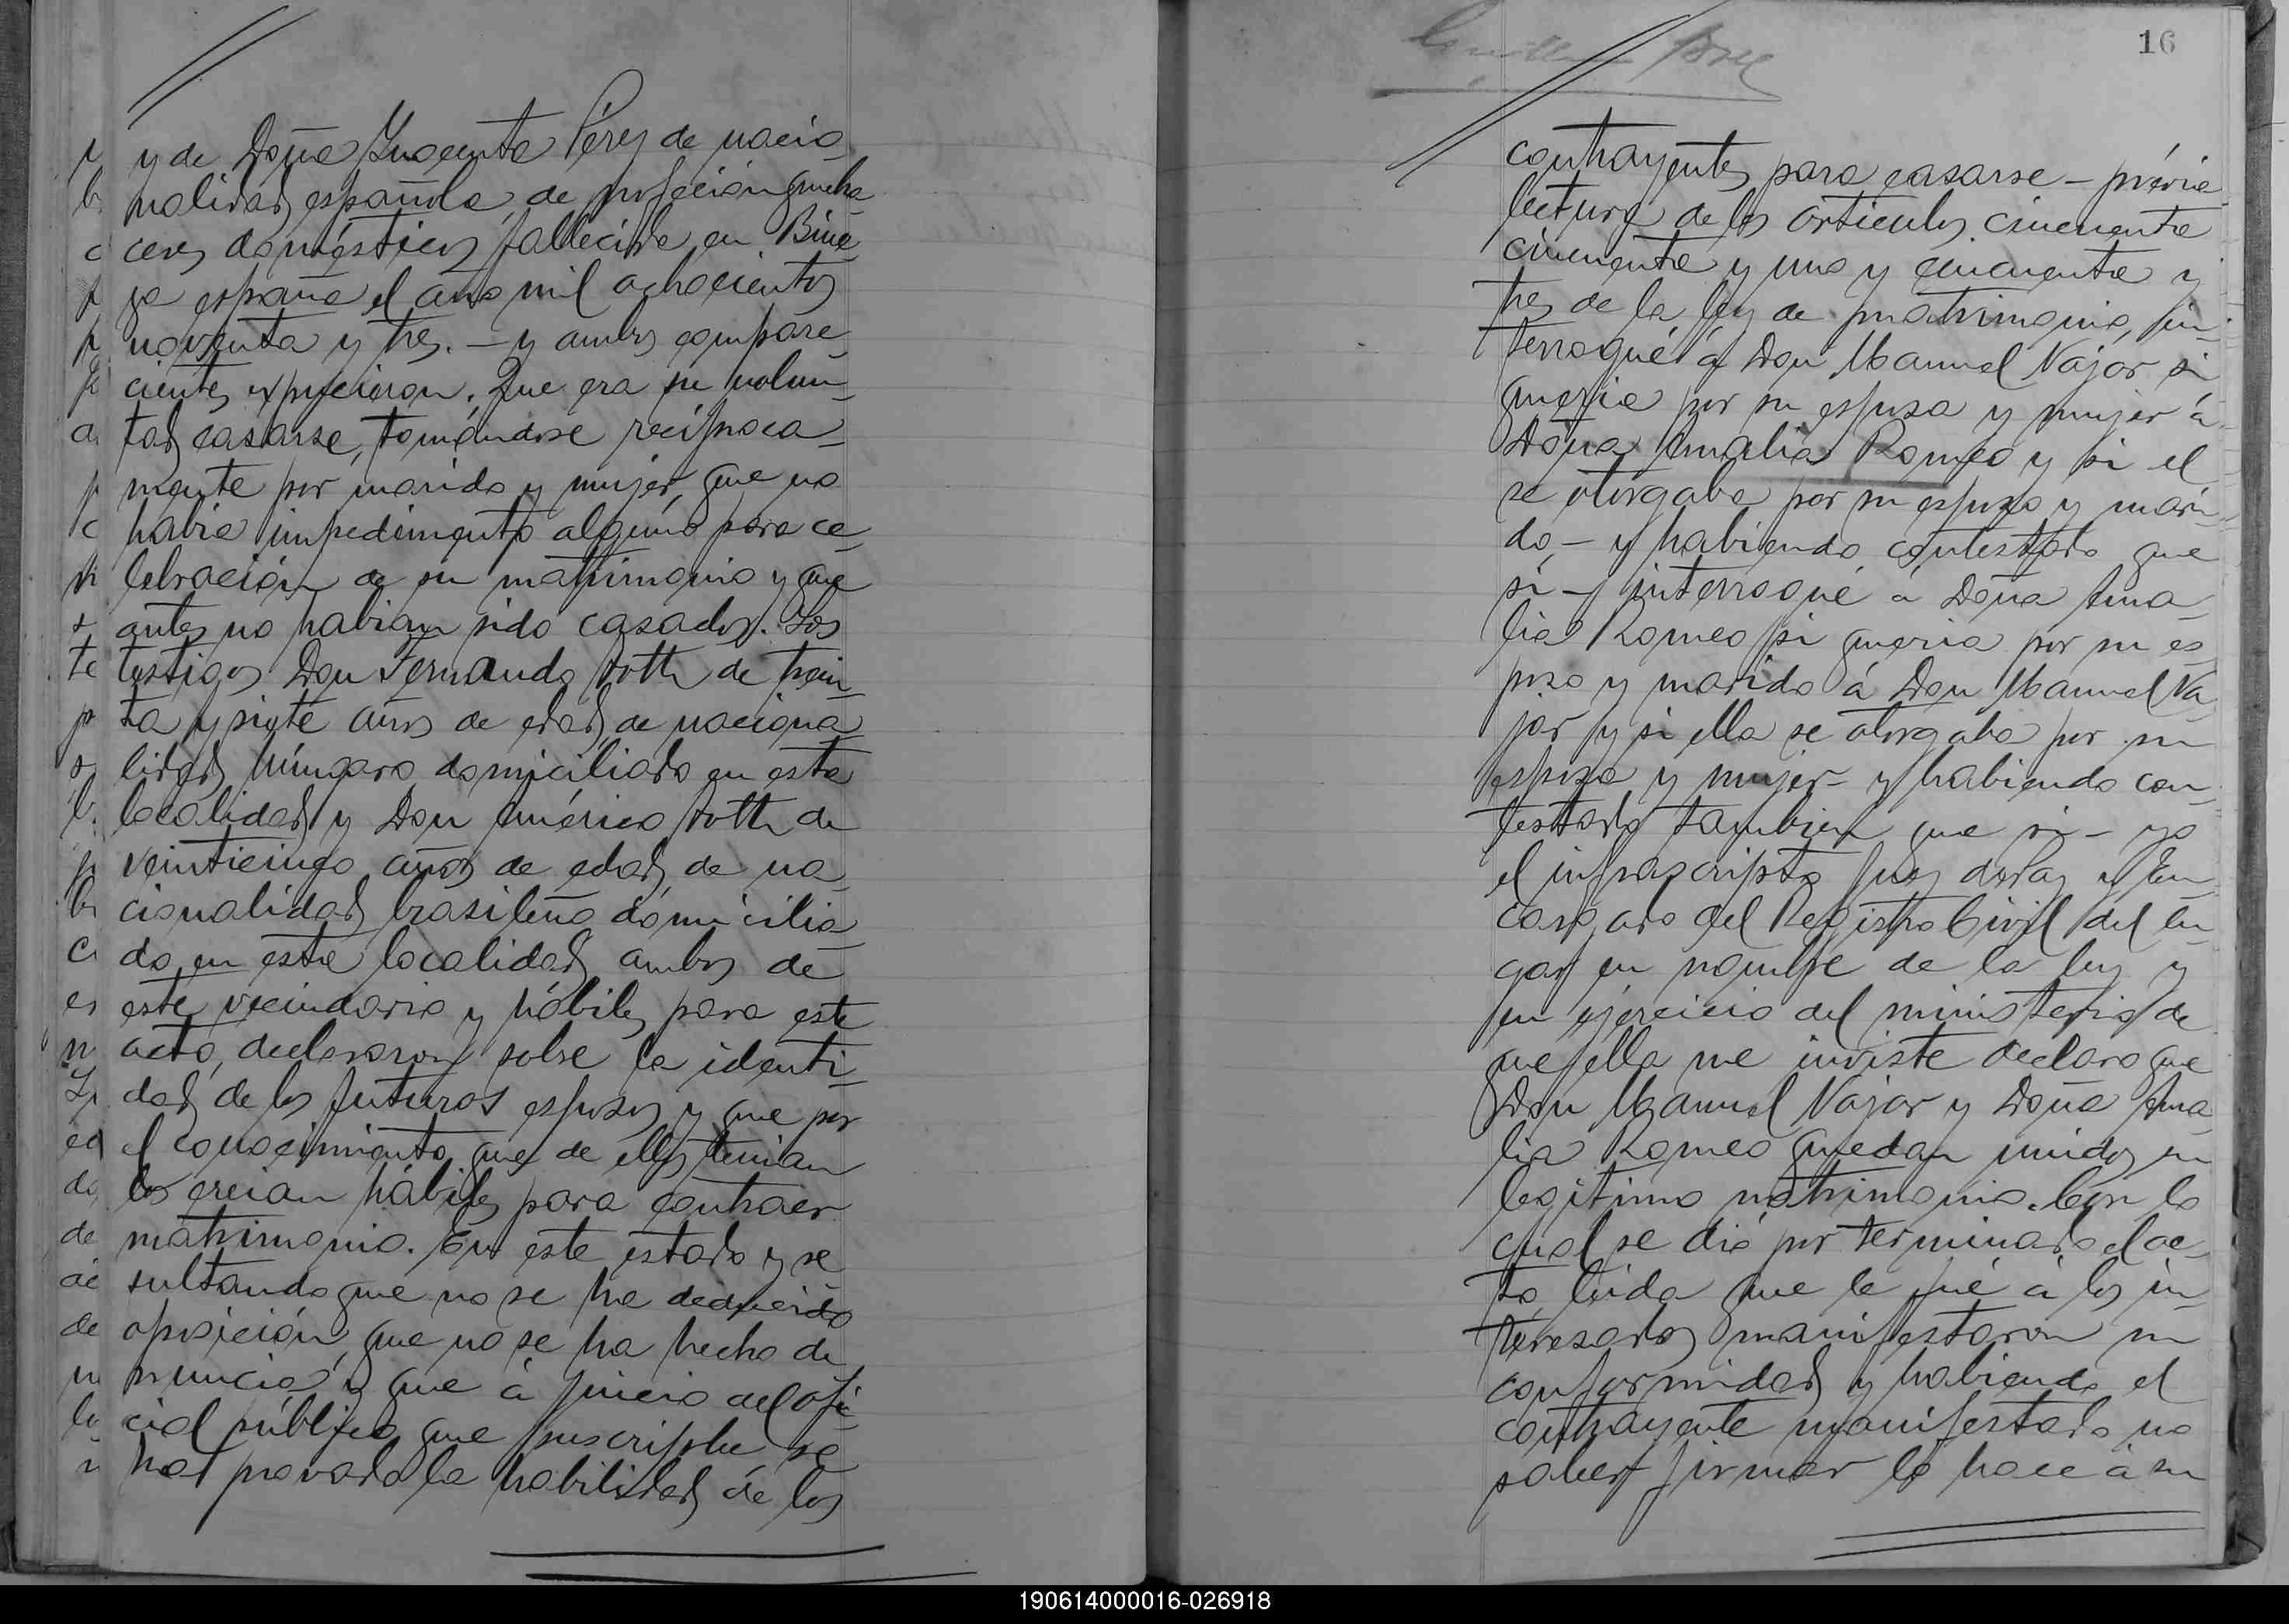 y de Doña Inocenta Pérez de nacio-
nalidad española, de profeción queha-
ceres domésticos fallecida en Biue-
ga españa el año mil ochocientos
noventa y tres. — y ambos compare-
cientes expucieron. Que era su volun-
tad casarse, tomándose recíproca-
mente por marido y mujer, que no
habia impedimento alguno para ce-
lebración de su matrimonio y que
antes no habian sido casados. Los
testigos Don Fernando Roth de trein-
ta y siete años de edad, de naciona-
lidad húngara domiciliado en esta
localidad y Don Américo Roth de
veinticinco años de edad, de na-
cionalidad brasileña domicilia-
do en esta localidad, ambos de
este vecindario y hábiles para este
acto, declararon sobre la identi-
dad de los futuros esposos y que por
el conocimiento que de ellos tenian
los creian hábiles para contraer
matrimonio. En este estado y re-
sultando que no se ha deducido
oposición, que no se ha hecho de-
nuncia y que á juicio del ofi-
cial público que suscriphe se
ha provado la habilidad de los
16
contrayentes para casarse — prévia
lectura de los articulos cincuenta
cincuenta y uno y cincuenta y
tres de la ley de matrimonio, in-
terrogué á Don Manuel Najar si
queria por su esposa y mujer á
Doña Amalia Romeo y si el
se otorgaba por su esposo y mari-
do, — y habiendo contestado que
si — interrogué á Doña Ama-
lia Romeo si queria por su es-
poso y marido á Don Manuel Na-
jar y si ella se otorgaba por su
esposa y mujer — y habiendo con-
testado tambien que si — yo
el infrascripto Juez de Paz y En-
cargado del Registro Civil del lu-
gar en nombre de la ley y
en ejercicio del ministerio de
que ella me inviste declaro que
Don Manuel Najar y Doña Ama-
lia Romeo quedan unidos en
legítimo matrimonio. Con lo
cual se dió por terminado el ac-
to, leida que le fué á los in-
teresados manifestaron su
conformidad y habiendo el
contrayente manifestado no
saber firmar lo hace á su
190614000016-026918